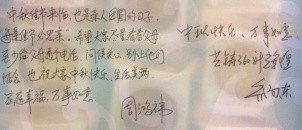 中秋佳节来临，也是亲人团圆的日子，
每逢佳节必思亲。希望大家尽量看看父母
至少给父母通个电话，问候关心，别让他们
惦念。也祝大家中秋快乐，生活美满，
家庭幸福，万事如意。
周鸿祎
中秋快乐，万事如意。